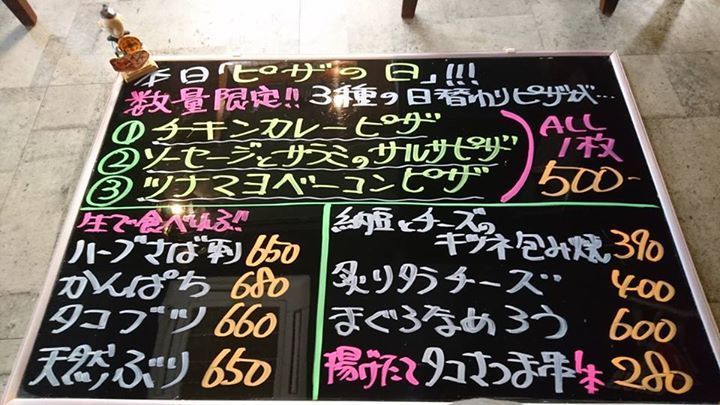 本日「ピザの日」!!!
数量限定!! 3種の日替わりピザが…
① チキンカレーピザ
② ソーセージとサラミのサルサピザ
③ ツナマヨベーコンピザ
ALL
1枚
500-
生で食べりぃ!!
ハーブさば刺 650
かんぱち 680
タコブツ 660
天然ぶり 650
納豆とチーズの
キツネ包み焼 390
炙りタラチーズ 400
まぐろなめろう 600
揚げたて タコさつま串 1本 280